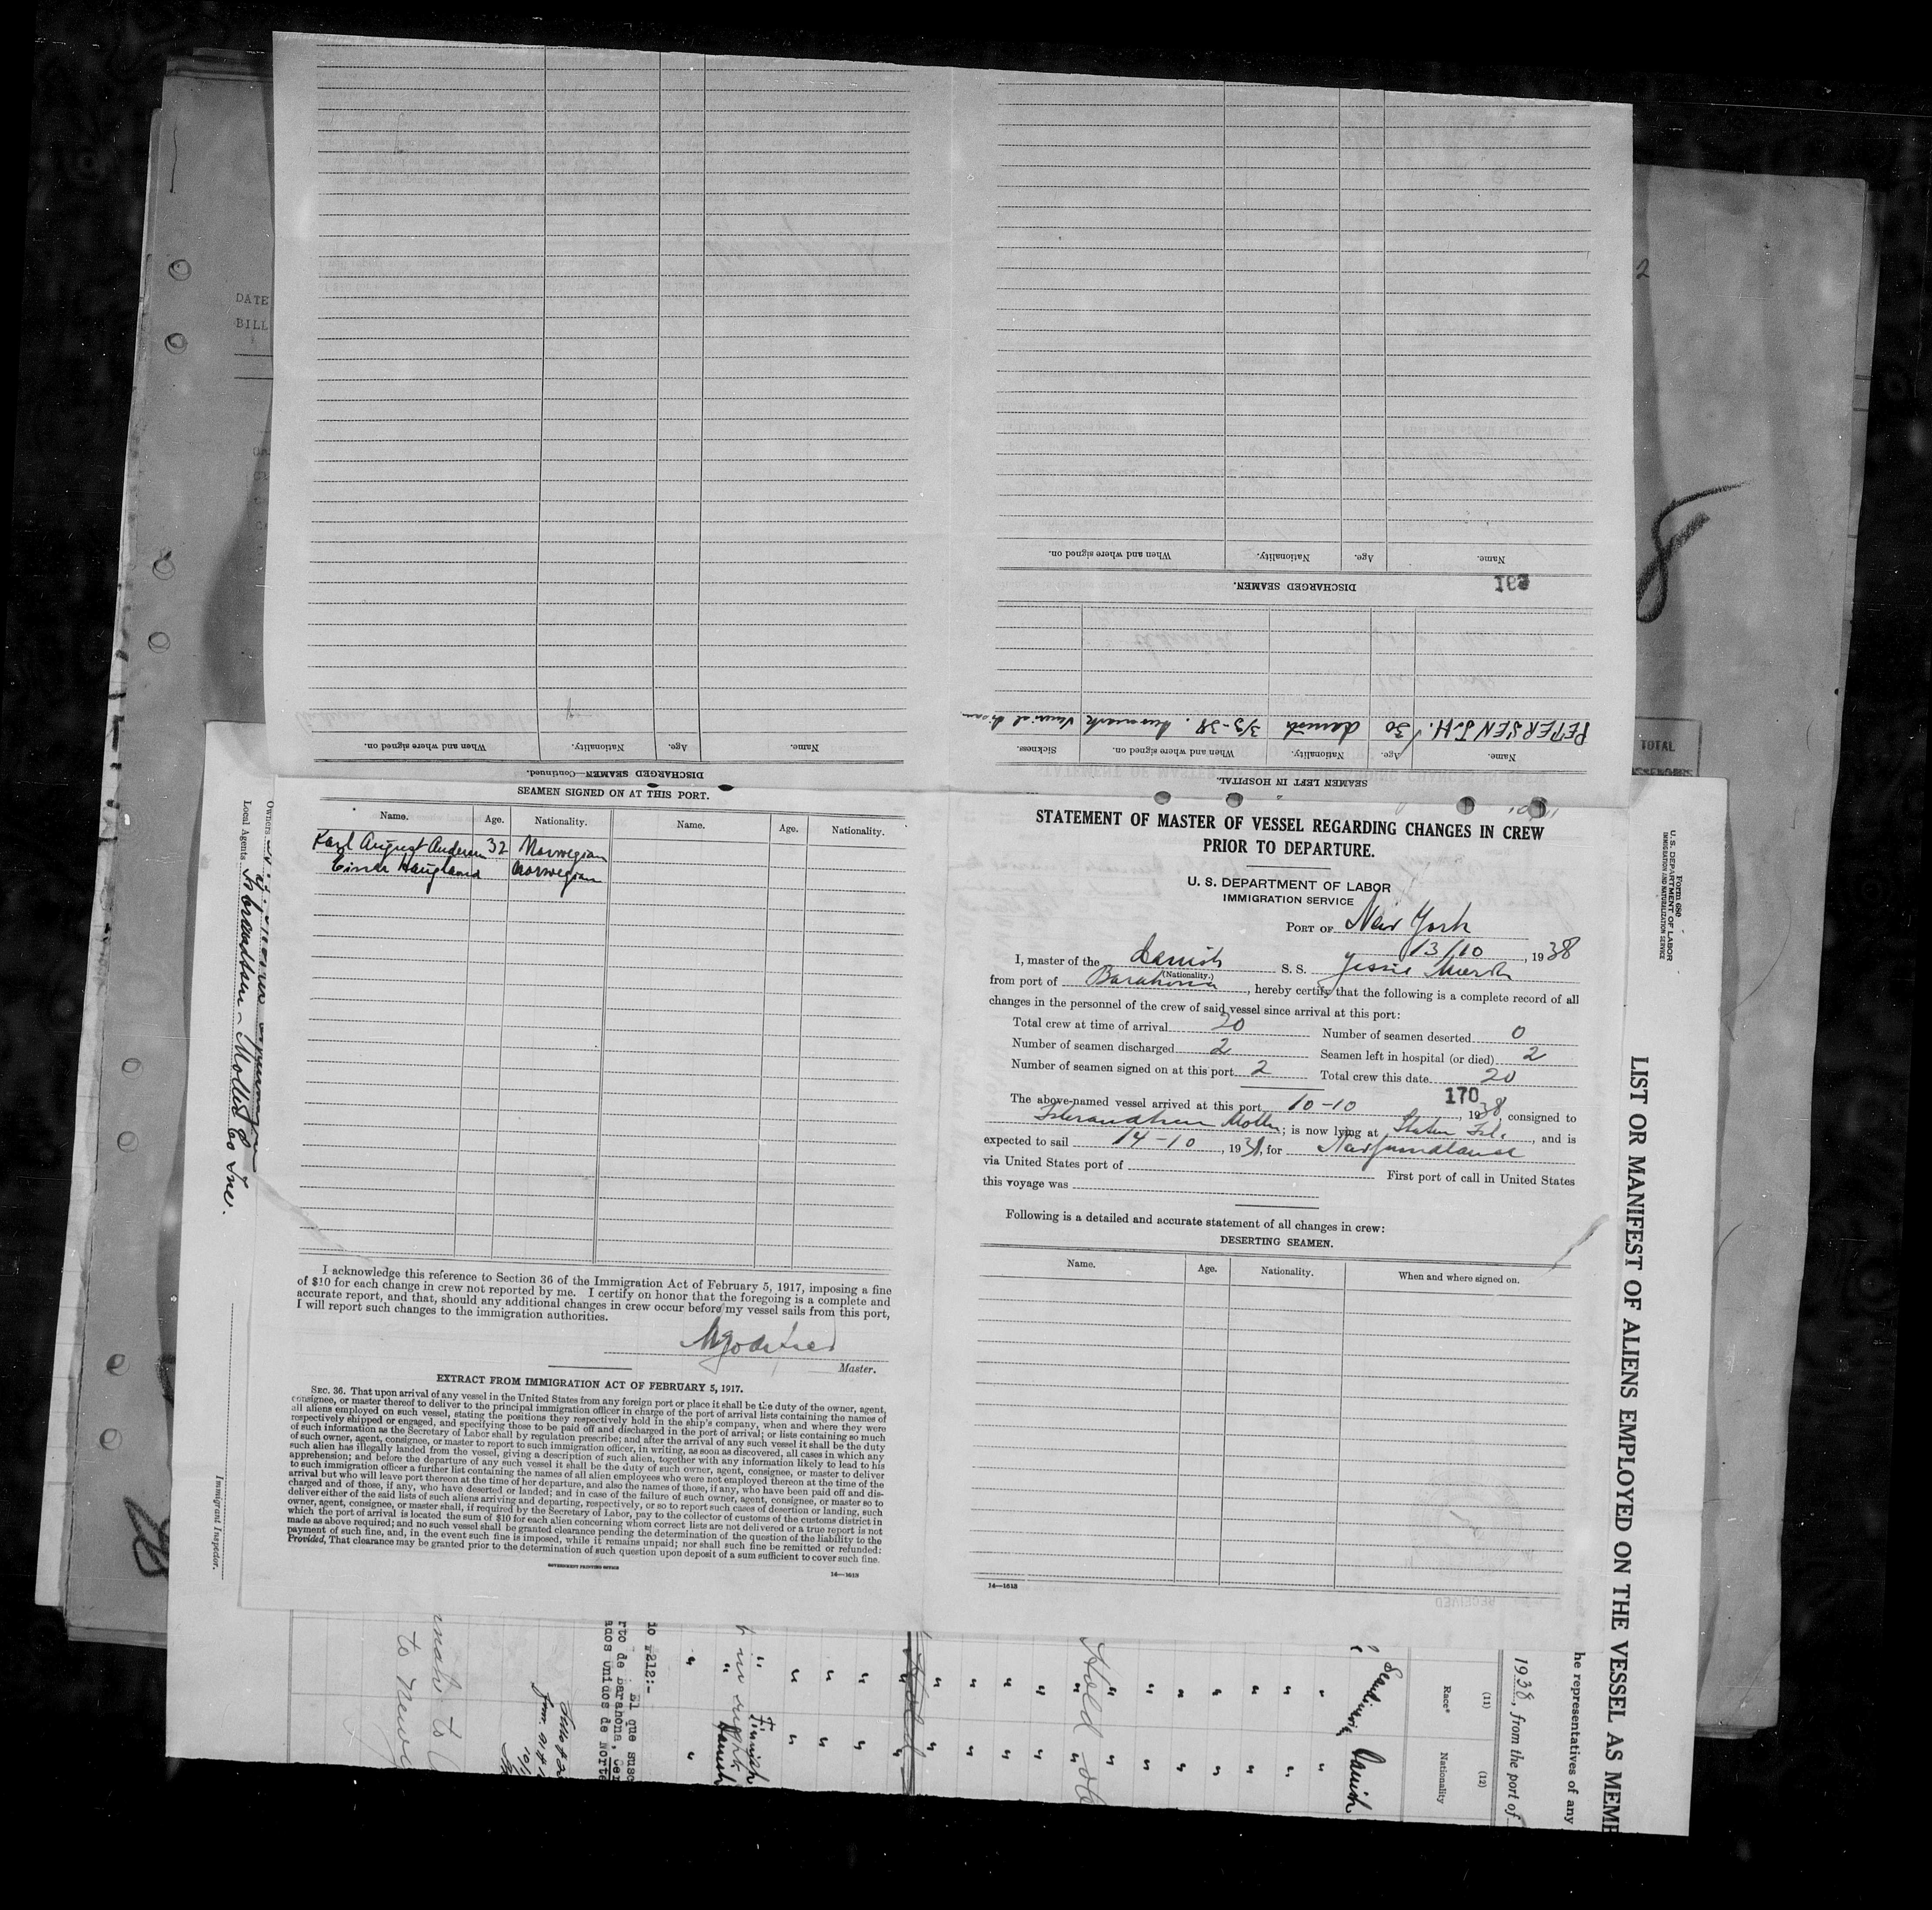 DISCHARGED SEAMEN—Continued.
Name. Age. Nationality. When and where signed on.
SEAMEN LEFT IN HOSPITAL.
Name. Age. Nationality. When and where signed on. Sickness.
PETERSEN J.H. 30 danish 3/3-38.
DISCHARGED SEAMEN.
Name. Age. Nationality. When and where signed on.
SEAMEN SIGNED ON AT THIS PORT.
Name. Age. Nationality. Name. Age. Nationality.
Karl August Andersen 32 Norwegian
Einar Haugland Norwegian
I acknowledge this reference to Section 36 of the Immigration Act of February 5, 1917, imposing a fine
of $10 for each change in crew not reported by me. I certify on honor that the foregoing is a complete and
accurate report, and that, should any additional changes in crew occur before my vessel sails from this port,
I will report such changes to the immigration authorities.
Master.
EXTRACT FROM IMMIGRATION ACT OF FEBRUARY 5, 1917.
SEC. 36. That upon arrival of any vessel in the United States from any foreign port or place it shall be the duty of the owner, agent,
consignee, or master thereof to deliver to the principal immigration officer in charge of the port of arrival lists containing the names of
all aliens employed on such vessel, stating the positions they respectively hold in the ship's company, when and where they were
respectively shipped or engaged, and specifying those to be paid off and discharged in the port of arrival; or lists containing so much
of such information as the Secretary of Labor shall by regulation prescribe; and after the arrival of any such vessel it shall be the duty
of such owner, agent, consignee, or master to report to such immigration officer, in writing, as soon as discovered, all cases in which any
such alien has illegally landed from the vessel, giving a description of such alien, together with any information likely to lead to his
apprehension; and before the departure of any such vessel it shall be the duty of such owner, agent, consignee, or master to deliver
to such immigration officer a further list containing the names of all alien employees who were not employed thereon at the time of the
arrival but who will leave port thereon at the time of her departure, and also the names of those, if any, who have been paid off and dis-
charged and of those, if any, who have deserted or landed; and in case of the failure of such owner, agent, consignee, or master so to
deliver either of the said lists of such aliens arriving and departing, respectively, or so to report such cases of desertion or landing, such
owner, agent, consignee, or master shall, if required by the Secretary of Labor, pay to the collector of customs of the customs district in
which the port of arrival is located the sum of $10 for each alien concerning whom correct lists are not delivered or a true report is not
made as above required; and no such vessel shall be granted clearance pending the determination of the question of the liability to the
payment of such fine, and, in the event such fine is imposed, while it remains unpaid; nor shall such fine be remitted or refunded:
Provided, That clearance may be granted prior to the determination of such question upon deposit of a sum sufficient to cover such fine.
GOVERNMENT PRINTING OFFICE
14—1613
STATEMENT OF MASTER OF VESSEL REGARDING CHANGES IN CREW
PRIOR TO DEPARTURE.
U. S. DEPARTMENT OF LABOR
IMMIGRATION SERVICE
PORT OF New York
13/10, 1938
I, master of the danish S. S. Jessie Mærsk
(Nationality.)
from port of Barahona, hereby certify that the following is a complete record of all
changes in the personnel of the crew of said vessel since arrival at this port:
Total crew at time of arrival 20 Number of seamen deserted 0
Number of seamen discharged 2 Seamen left in hospital (or died) 2
Number of seamen signed on at this port 2 Total crew this date 20
170
The above-named vessel arrived at this port 10-10, 1938, consigned to
Isbrandtsen Moller; is now lying at Staten Isl., and is
expected to sail 14-10, 1938, for Newfoundland
via United States port of First port of call in United States
this voyage was
Following is a detailed and accurate statement of all changes in crew:
DESERTING SEAMEN.
Name. Age. Nationality. When and where signed on.
14—1613
Form 680
U. S. DEPARTMENT OF LABOR
IMMIGRATION AND NATURALIZATION SERVICE
LIST OR MANIFEST OF ALIENS EMPLOYED ON THE VESSEL AS MEME
he representatives of any
1938, from the port of
(11) (12)
Race* Nationality
Danish
Hold
Finnish
Danish
Owners
Local Agents Isbrandtsen - Moller Co Inc.
Immigrant Inspector.
DATE
BILL
TOTAL
PASSENGERS
El que susc
rto de Barahona, Cer
anos Unidos de Norte
RECEIVED